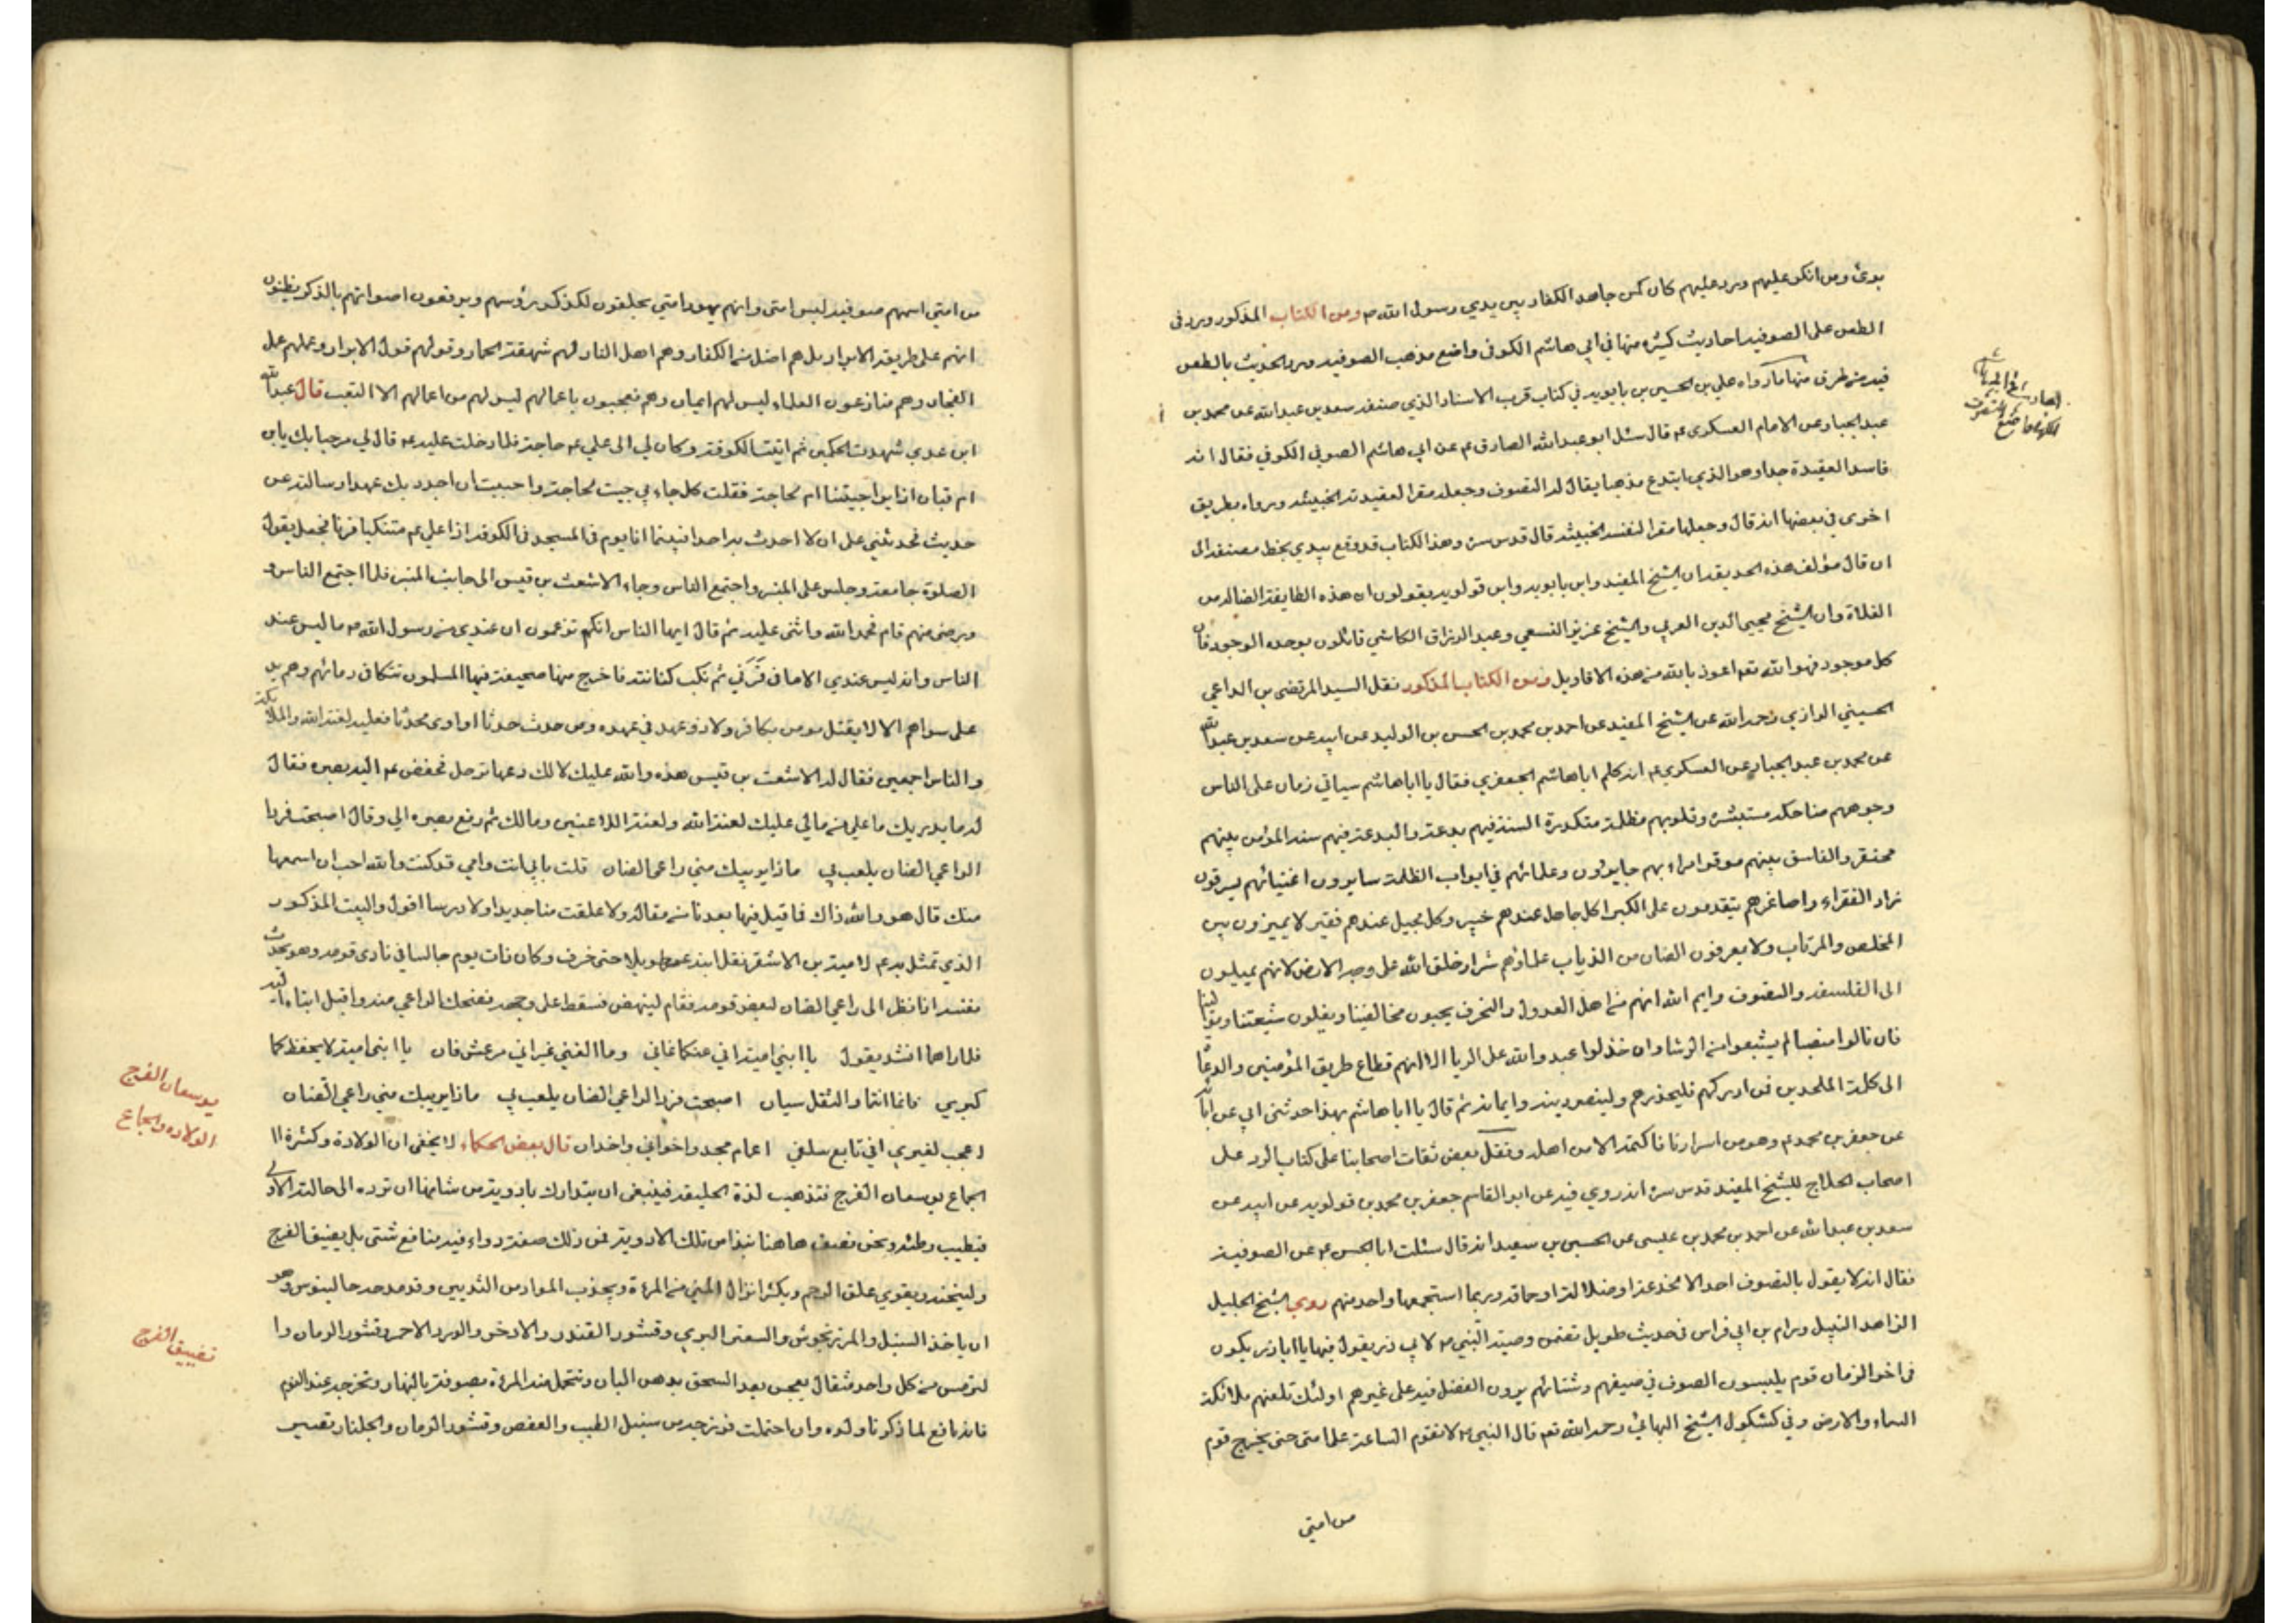 برئ ومن انكر عليهم ورد عليهم كان كمن جاهد الكفار بين يدي رسول الله ص ومن الكتاب المذكور ورد في
الطعن على الصوفيه احاديث كثيره منها في ابي هاشم الكوفي واضع مذهب الصوفيه ورد الحديث بالطعن
فيه من طرق منها ما رواه علي بن الحسين بن بابويه في كتاب قرب الاسناد الذي صنفه سعد بن عبد الله عن محمد بن
عبد الجبار عن الامام العسكري ع قال سئل ابو عبد الله الصادق ع عن ابي هاشم الصوفي الكوفي فقال انه
فاسد العقيدة جدا وهو الذي ابتدع مذهبا يقال له التصوف وجعله مقرا لعقيدته الخبيثه ورواه بطريق
اخرى في بعضها انه قال وجعلها مقرا لنفسه الخبيثه قال قدس سره وهذا الكتاب قد وقع بيدي بخط مصنفه الى
ان قال مؤلف هذه الحديقه ان الشيخ المفيد وابن بابويه وابن قولويه يقولون ان هذه الطايفة الضاله من
الغلاة وان الشيخ محيي الدين العربي والشيخ عزيز النسفي وعبد الرزاق الكاشي قائلون بوحده الوجود فان
كل موجود فهو الله تعه اعوذ بالله من هذه الاقاويل ومن الكتاب المذكور نقل السيد المرتضى بن الداعي
الحسيني الرازي رحمه الله عن الشيخ المفيد عن احمد بن محمد بن الحسن بن الوليد عن ابيه عن سعد بن عبد الله
عن محمد بن عبد الجبار عن العسكري ع انه كلم ابا هاشم الجعفري فقال يا ابا هاشم سياتي زمان على الناس
وجوههم ضاحكه مستبشره وقلوبهم مظلمة متكدرة السنة فيهم بدعة والبدعة فيهم سنه المؤمن بينهم
محتقر والفاسق بينهم موقر امراءهم جايرون وعلمائهم في ابواب الظلمة سايرون اغنيائهم يسرقون
زاد الفقراء واصاغرهم يتقدمون على الكبرا كل جاهل عندهم خبير وكل محيل عندهم فقير لا يميزون بين
المخلص والمرتاب ولا يعرفون الضان من الذياب علماؤهم شرار خلق الله على وجه الارض لانهم يميلون
الى الفلسفه والتصوف وايم الله انهم من اهل العدول والتحرف يحبون مخالفينا ويضلون شيعتنا وموالينا
فان نالوا منصبا لم يشبعوا من الرشا وان خذلوا عبدوا الله على الريا الا انهم قطاع طريق المؤمنين والدعاة
الى كلمة الملحدين فمن ادركهم فليحذرهم وليصن دينه وايمانه ثم قال يا ابا هاشم بهذا حدثني ابي عن ابائه
عن جعفر بن محمد ع وهو من اسرارنا فاكتمه الا من اهله ونقل بعض ثقات اصحابنا على كتاب الرد على
اصحاب الحلاج للشيخ المفيد قدس سره انه روي فيه عن ابو القاسم جعفر بن محمد بن قولويه عن ابيه عن
سعد بن عبد الله عن احمد بن محمد بن عيسى عن الحسين بن سعيد انه قال سئلت ابا الحسن ع عن الصوفية
فقال انه لا يقول بالتصوف احد الا لخدعة او ضلالة او حماقه وربما استجمعها واحد منهم روي الشيخ الجليل
الزاهد النبيل ورام بن ابي فراس في حديث طويل تضمن وصية النبي ص لابي ذر يقول فيها يا ابا ذر يكون
في اخر الزمان قوم يلبسون الصوف في صيفهم وشتائهم يرون الفضل فيه على غيرهم اولئك تلعنهم ملائكة
السماء والارض وفي كشكول الشيخ البهائي رحمه الله تعه قال النبي ص لا تقوم الساعة على امتي حتى يخرج قوم
من امتي
من امتي اسمهم صوفيه ليس امتي وانهم يهود امتي يحلقون للذكور رؤسهم ويرفعون اصواتهم بالذكر يظنون
انهم على طريقة الابرار بل هم اضل من الكفار وهم اهل النار لهم شهقة الحمار وقولهم قول الابرار وعملهم عمل
الفجار وهم منازعون العلماء ليس لهم ايمان وهم معجبون باعمالهم ليس لهم من اعمالهم الا التعب قال عبد الله
ابن عدي شهدت الحكمين ثم اتيت الكوفة وكان لي الى علي ع حاجة فلما دخلت عليه ع قال لي مرحبا بك يابن
ام قتان ازايرا جيتنا ام لحاجة فقلت كل جاء بي جيت لحاجة واحببت ان اجدد بك عهدا وسالته عن
حديث فحدثني على ان لا احدث به احدا فبينما انا يوم في المسجد في الكوفة اذا علي ع متنكبا قرنا فجعل يقول
الصلوة جامعة وجلس على المنبر واجتمع الناس وجاء الاشعث بن قيس الى جانب المنبر فلما اجتمع الناس و
ورضى منهم قام فحمد الله واثنى عليه ثم قال ايها الناس انكم تزعمون ان عندي من رسول الله ص ما ليس عند
الناس وانه ليس عندي الا ما في قرني ثم نكب كنانته فاخرج منها صحيفة فيها المسلمون تتكافى دمائهم وهم يد
على سواهم الا لا يقتل مومن بكافر ولا ذو عهد في عهده ومن حدث حدثا او اوى محدثا فعليه لعنة الله والملائكة
والناس اجمعين فقال له الاشعث بن قيس هذه والله عليك لا لك دعها ترحل فخفض ع اليه بصره فقال
له ما يدريك ما علي من مالي عليك لعنة الله ولعنة اللاعنين ومالك ثم رفع بصره الي وقال اصبحت فردا
الراعي الضان يلعب بي ماذا يريبك مني راعى الضان قلت بابي انت وامي قد كنت والله احب ان اسمعها
منك قال هو والله ذاك فما قيل فيها بعدنا من مقالة ولا علقت منا جديدا ولا درسا اقول والبيت المذكور
الذي تمثل به ع لامية بن الاشقر نقل انه عمر طويلا حتى خرف وكان ذات يوم جالسا في نادى قومه وهو يحدث
نفسه اذا نظر الى راعي الضان لبعض قومه فقام لينهض فسقط على وجهه فضحك الراعي منه واقبل ابناه اليه
فلما راهما انشد يقول يا ابني امية اني عنكما غاني وما الغني غير اني مرعش فان يا ابني امية لا يحفظ كما
كبري فانما انتما والثقل سيان اصبحت فردا لراعي الضان يلعب بي ماذا يريبك مني راعي الضان
اعجب لغيري اني تابع سلفي اعمام مجد واخواني واخدان قال بعض الحكماء لا يخفى ان الولادة وكثرة ال
الجماع يوسعان الفرج فتذهب لذة الحليقه فينبغى ان يتدارك بادوية من شانها ان ترده الى حالته الاولى
فيطيب وطئه ونحن نصف هاهنا نبذا من تلك الادوية فمن ذلك صفة دواء فيه منافع شتى بل يضيق الفرج
وليسخنه ويقوي علق الرحم ويكثر انزال المني من المرءة ويجذب المواد من الثديين وقد مدحه جالينوس وهو
ان ياخذ السنبل والمرزنجوش والسعتر البري وقشور الكندر والاذخر والورد الاحمر وقشور الرمان وا
لترمس من كل واحد مثقال يعجن بعد السحق بدهن البان وتتحمل منه المرءة بصوفة بالنهار وتخرجه عند النوم
فانه نافع لما ذكرنا وان احتملت فرزجه من سنبل الطيب والعفص وقشور الرمان والجلنار تفسير
يوسعان الفرج
الولاده والجماع
تضييق الفرج